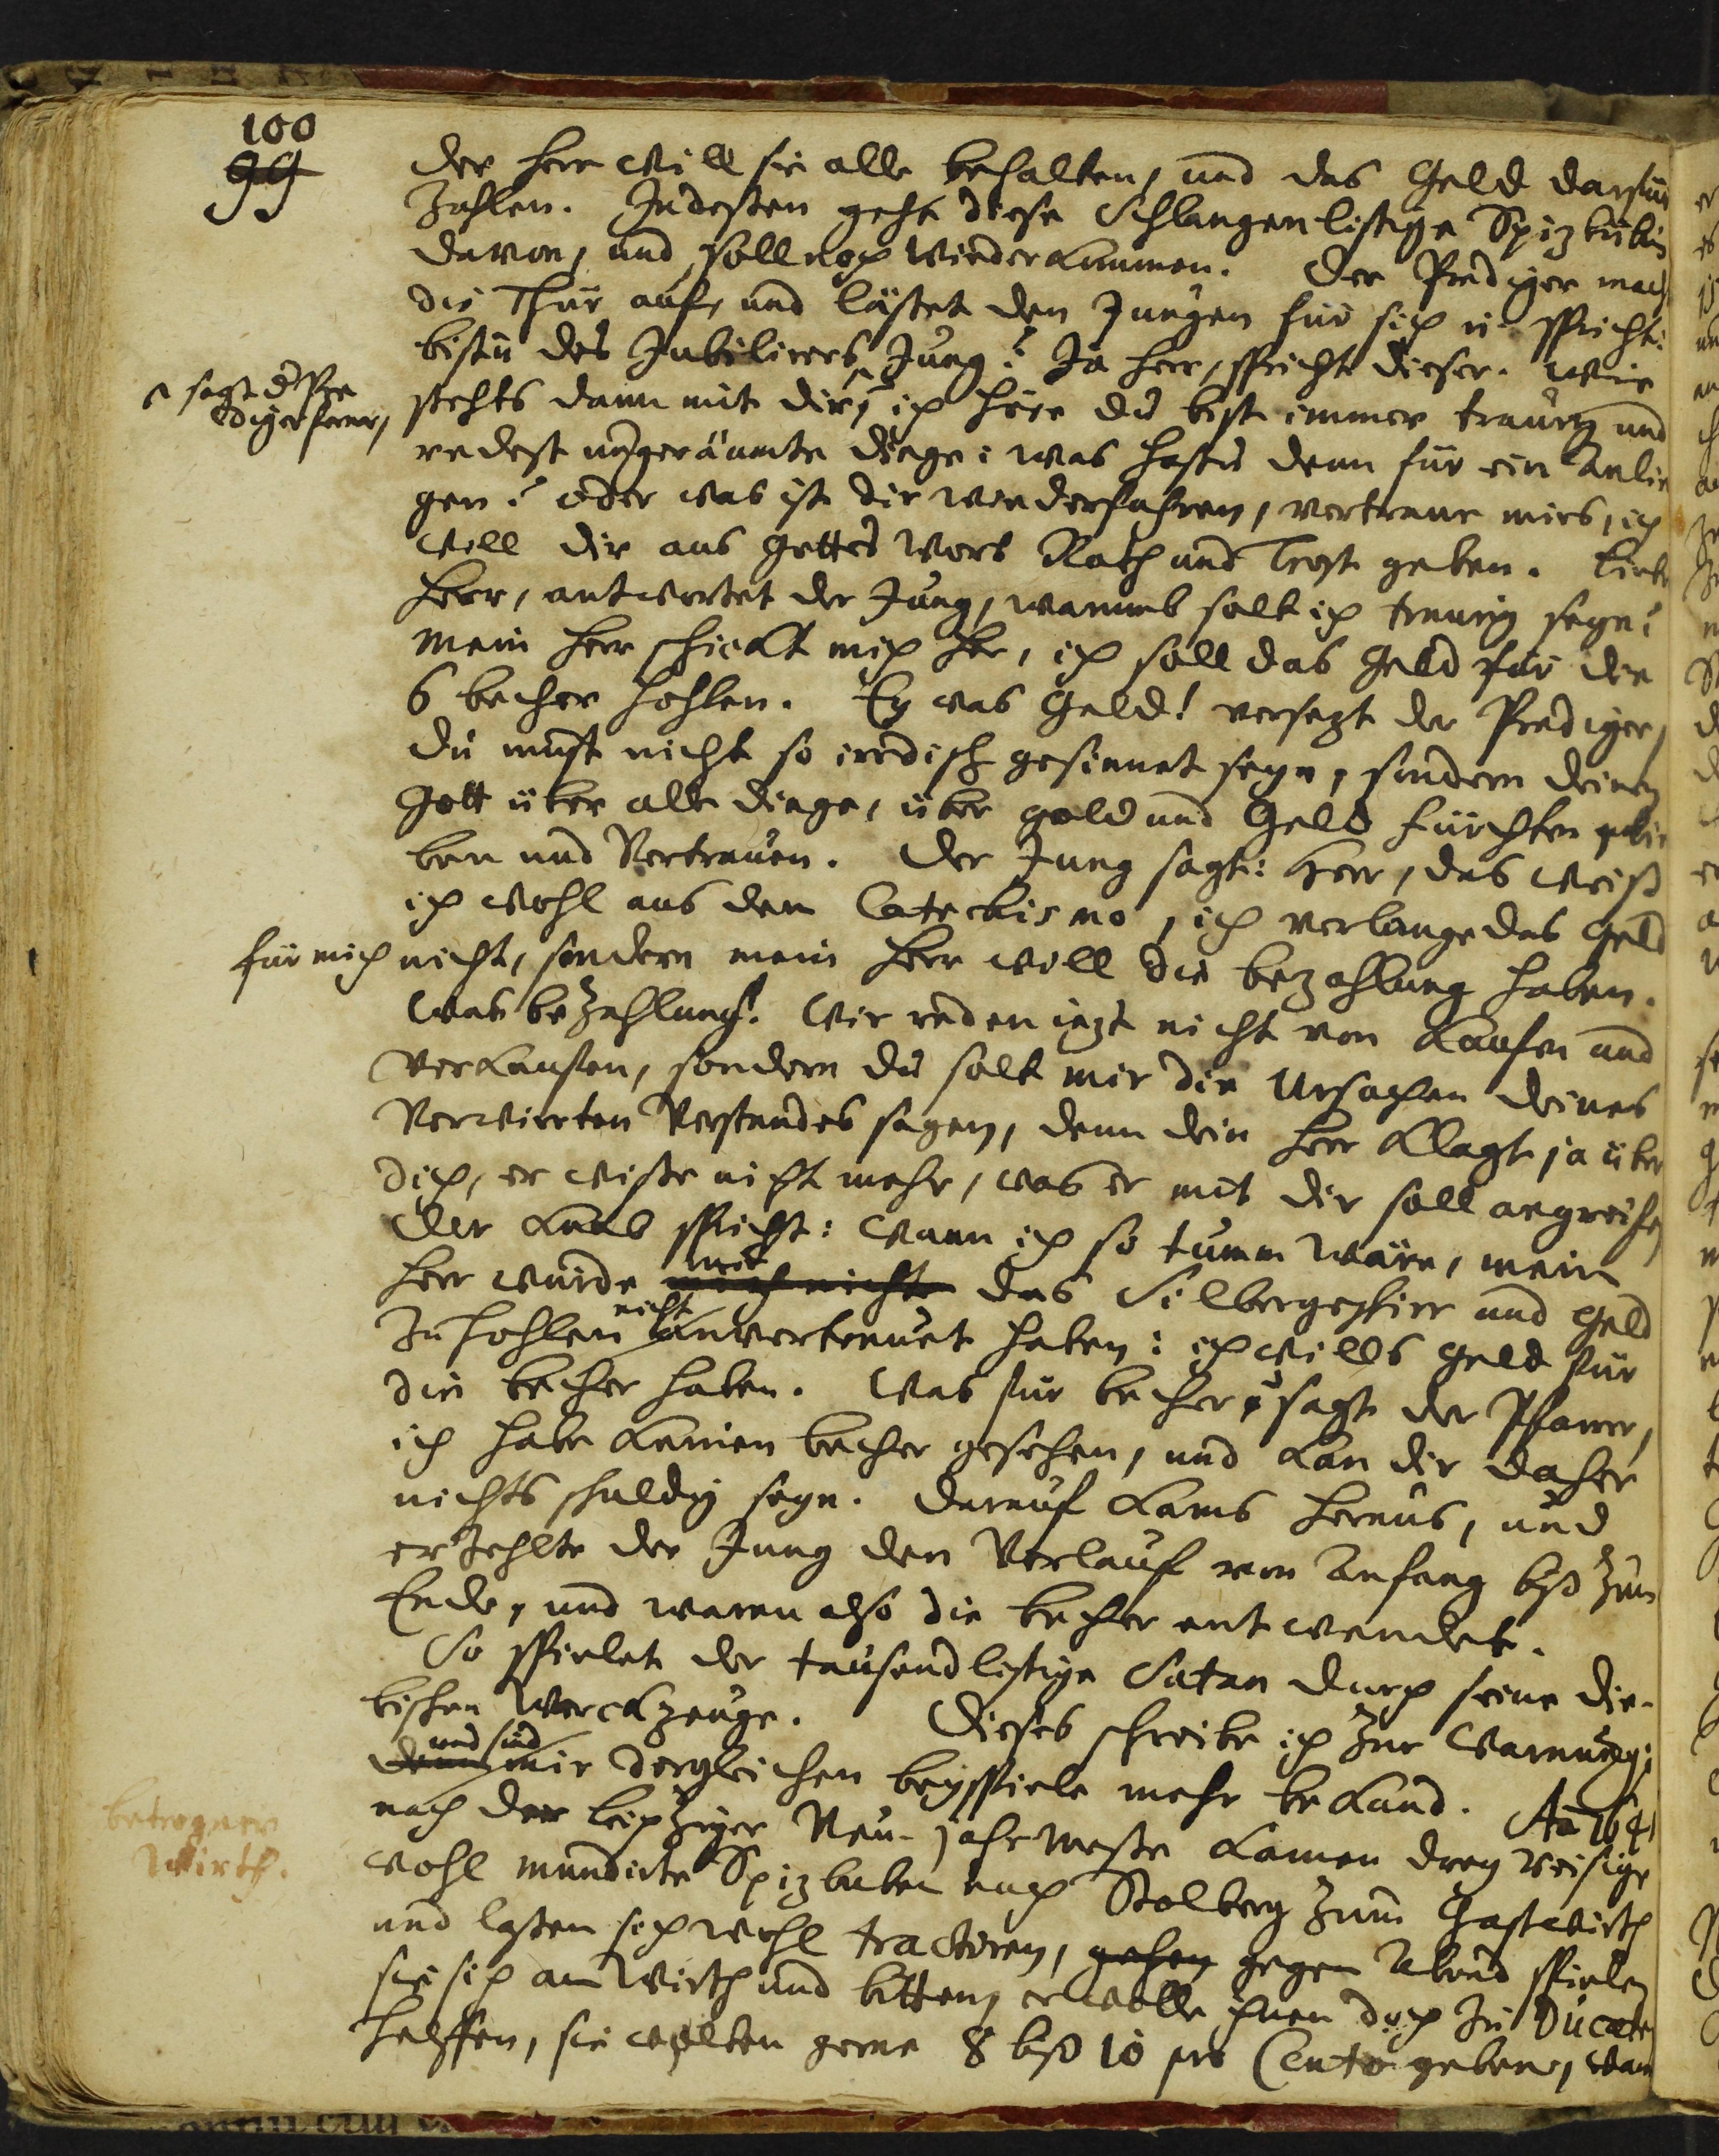 100
99
der Herr will sie alle behalten, und das Geld darfür
zahlen. Indeßen geht diese Schlangenlistige Spizbübin
davon, und soll noch wiederkommen. Der Prediger mach
die Thür auf, und läßet den Jungen für sich u. spricht:
bistu des Jubilirers Jung? Ja Herr, spricht dieser. Wie
stehts dann mit dir, ich höre du bist immer traurig und
sagt der Pre
diger ferner,
redest ungeräumte dinge: was hastu denn für ein Anlie
gen? oder was ist dir wiederfahren, vertraue mirs, ich
will dir aus Gottes Wort Rath und Trost geben. Lieber
Herr, antwortet der Jung, warumb solt ich traurig seyn?
Mein Herr schickt mich her, ich soll das Geld für die
6 becher hohlen. Ey was Geld! versezt der Prediger,
du must nicht so irrdisch gesinnet seyn, sondern deinen
Gott über alle dinge, über gold und Geld fürchten lie
ben und Vertrauen. Der Jung sagt: Herr, das weiß
ich wohl aus dem Catechismo, ich verlange das Geld
für mich nicht, sondern mein Herr will die bezahlung haben.
Was bezahlung? Wir reden iezt nicht von Kaufen und
Verkaufen, sondern du solt mir die Ursachen deines
Verwirrten Verstandes sagen, denn dein Herr klagt ja über
dich, er wiße nicht mehr, was er mit dir soll angreifen
Der Knab spricht: Wann ich so tumm wäre, mein
Herr würde mir mich nicht das Silbergeschirr und Geld
zu hohlen nicht anvertrauet haben: ich wills Geld für
die becher haben. Was für becher? sagt der Pfarrer,
ich habe keinen becher gesehen, und kan dir daher
nichts schuldig seyn. Darauf kams heraus, und
erzehlte der Jung den Verlauf von Anfang biß zum
Ende, und waren also die becher entwendet.
So spielet der tausendlistige Satan durch seine die-
bischen Werckzeuge. Dieses schreibe ich zur Warnung;
und sind
denn mir dergleichen beyspiele mehr bekand. Ao 164
betrogner
Wirth.
nach der Leipziger Neu-jahr Meße kamen drey reisige
wohl mundirte Spizbuben nach Stolberg zum Gastwirth
und laßen sich wohl tractiren, gehen gegen Abend spielen
sie sich an Wirth und bitten, er wolle ihnen doch zu Ducaten
helffen, sie wolten gerne 8 biß 10 pro Cento geben, wan